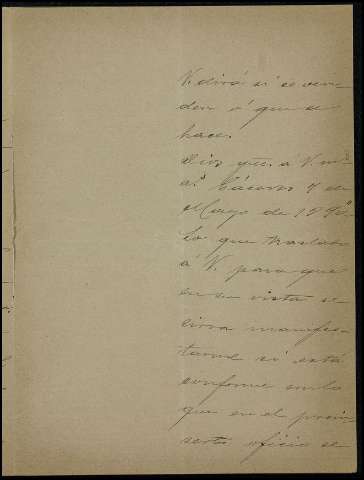 V. dirá si se ven-
den ó que se
hace.
Dios gue. á V. m.s
a.s Cáceres 7 de
Mayo de 189
Lo que traslado
á V. para que
en su vista se
sirva manifes-
tarme si está
conforme con lo
que en el prein-
serto oficio se